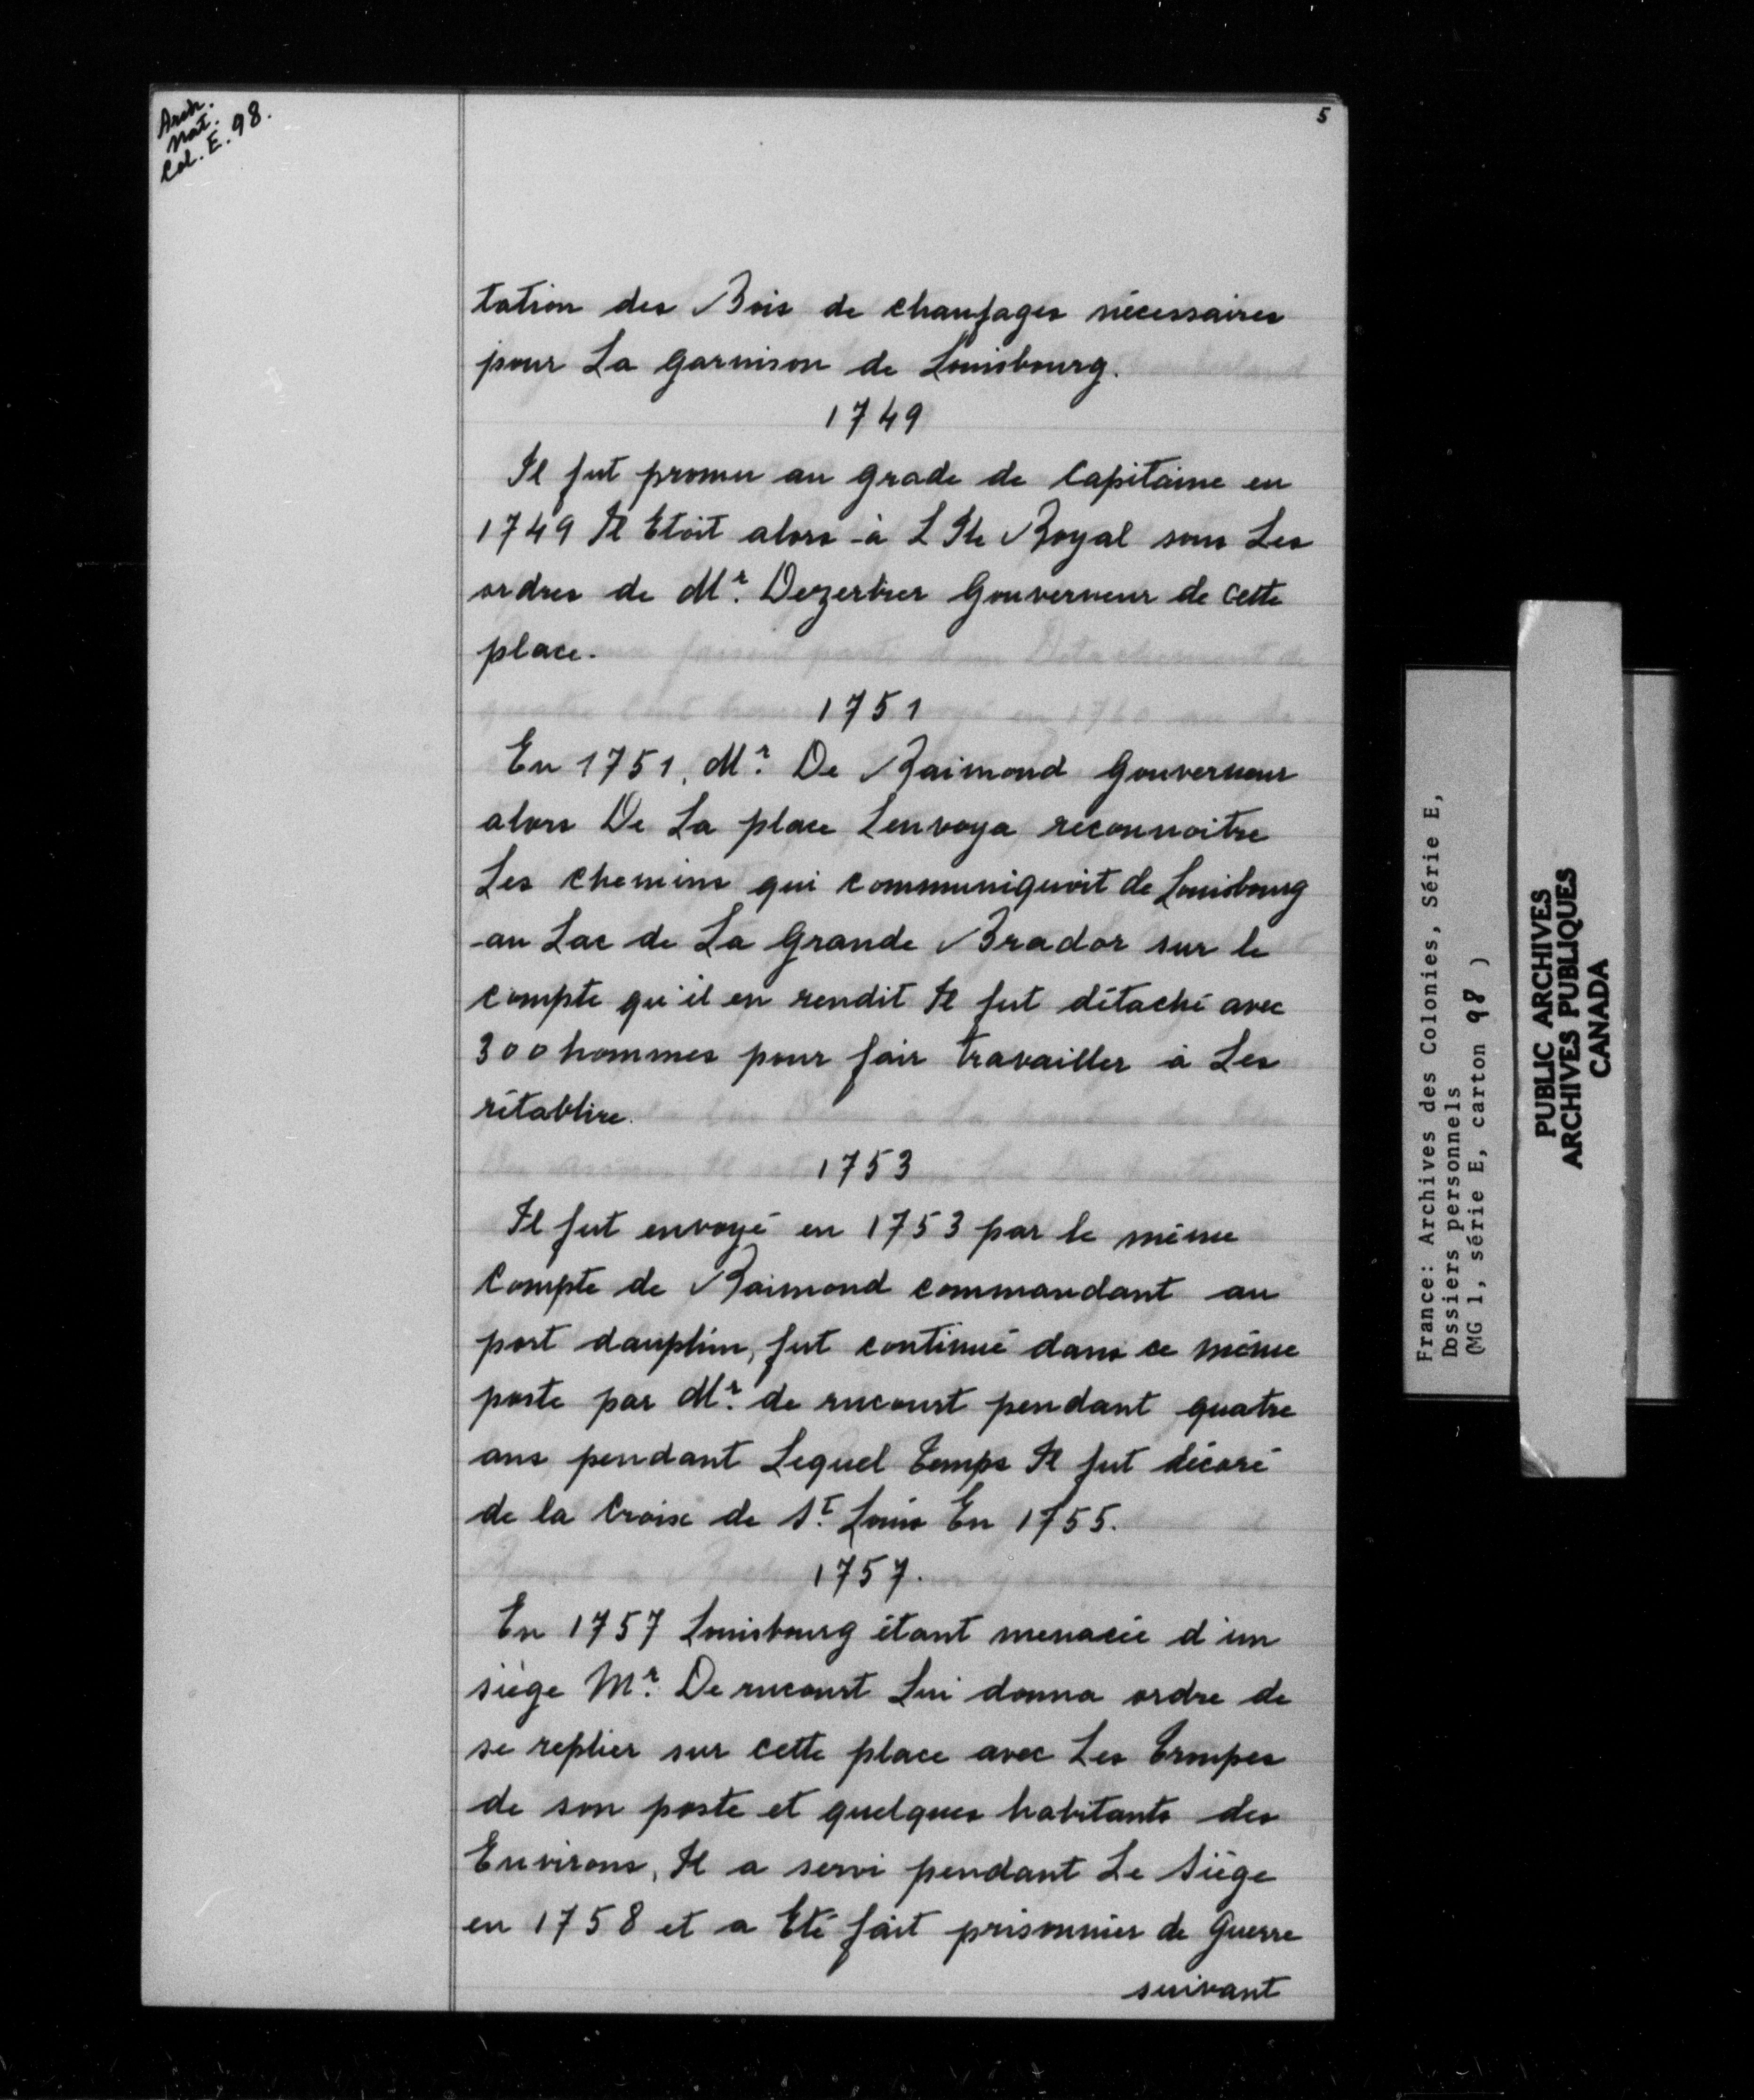 Arch.
Nat.
Col. E. 98.
5
tation des Bois de chaufages nécessaires
pour La garnison de Louisbourg.
1749
Il fut promu au grade de Capitaine en
1749 Il Etoit alors à L Ile Royal sous Les
ordres de Mr. Dezerbier Gouverneur de cette
place.
1751
En 1751, Mr. De Raimond Gouverneur
alors De La place Lenvoya reconnoitre
Les chemins qui communiquoit de Louisbourg
au Lac de La Grande Brador sur le
compte qu'il en rendit Il fut détaché avec
300 hommes pour fair travailler à Les
rétablire.
1753
Il fut envoyé en 1753 par le même
Compte de Raimond commandant au
port dauphin, fut continué dans ce même
poste par Mr. de rucourt pendant quatre
ans pendant Lequel Temps Il fut décoré
de la Croix de St. Louis En 1755.
1757.
En 1757 Louisbourg étant menacée d'un
siège Mr. De rucourt Lui donna ordre de
se replier sur cette place avec Les Troupes
de son poste et quelques habitants des
Environs, Il a servi pendant Le Siège
en 1758 et a Eté fait prisonnier de Guerre
suivant
France: Archives des Colonies, Série E,
Dossiers personnels
(MG 1, série E, carton 98 )
PUBLIC ARCHIVES
ARCHIVES PUBLIQUES
CANADA